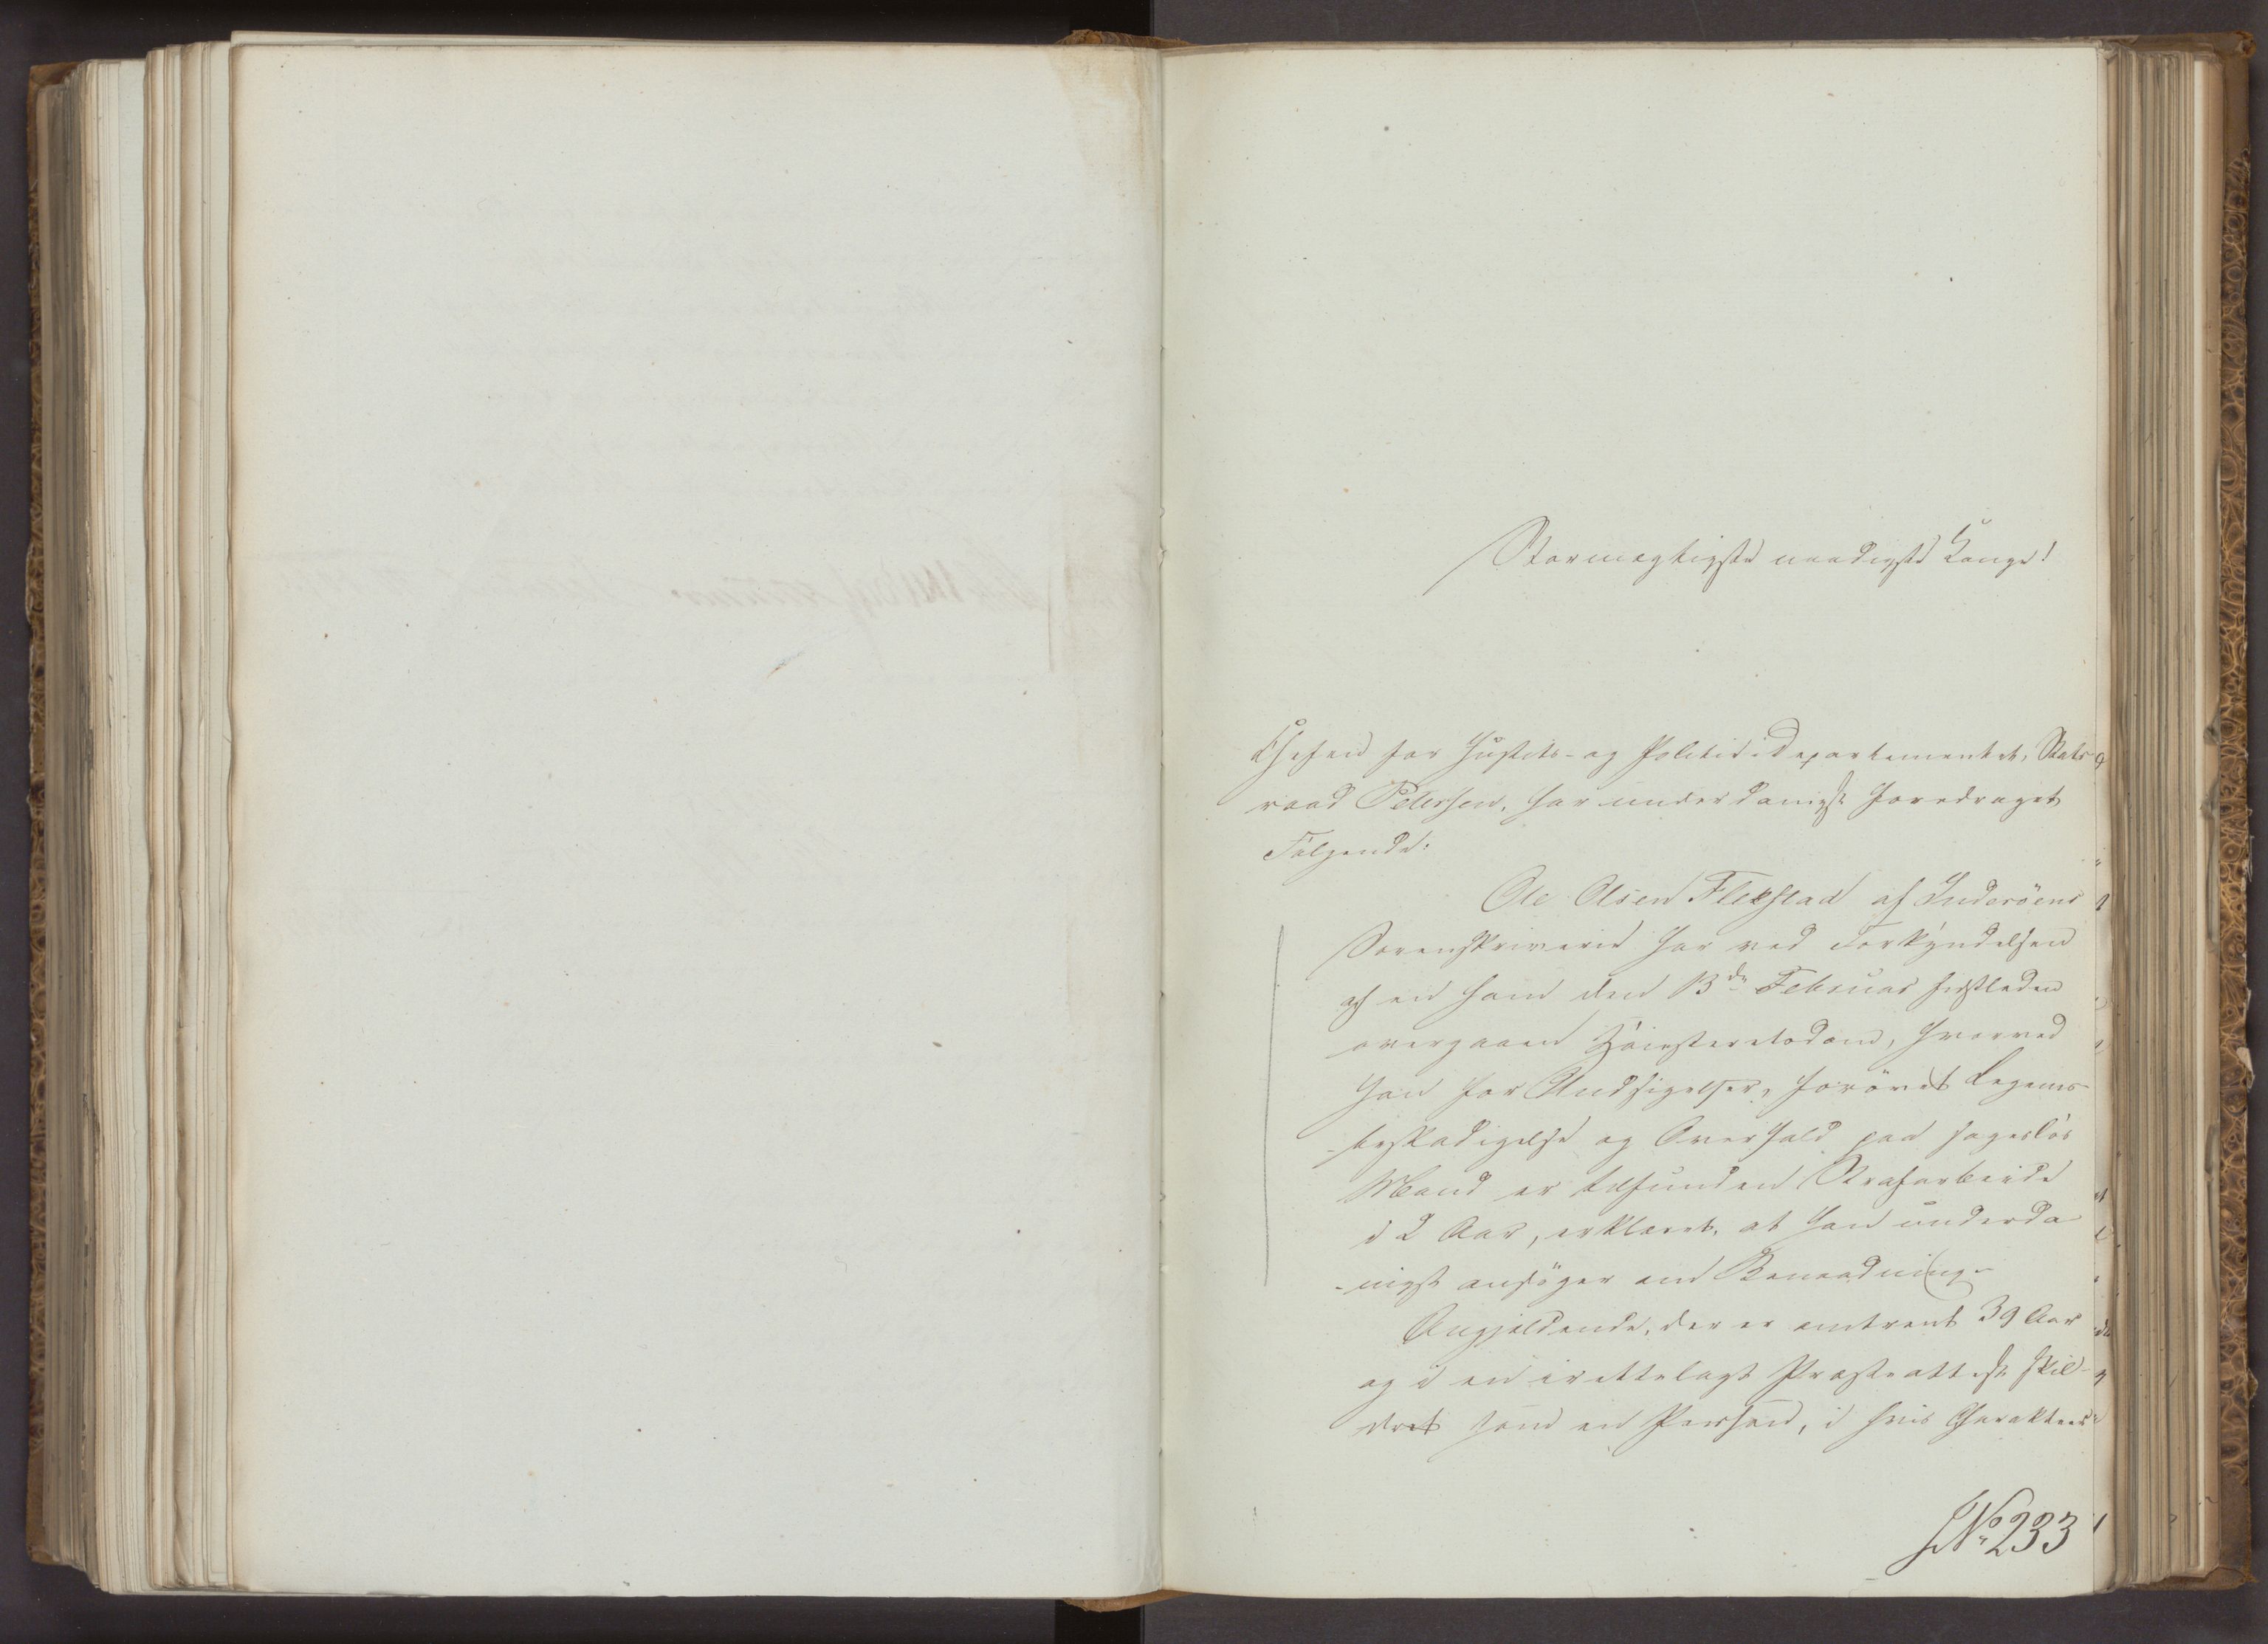 Stormægtigste naadigste Konge!
Chefen for Justits- og Politidepartementet, Stats-
raad Petersen, har underdanigst foredraget
Følgende:
Ole Olsen Flekstad af Inderöens
Sorenskriveri har ved Forkyndelsen
af en ham den 13de Februar sidstleden
overgaaen Höiesteretsdom, hvorved
han for Undsigelser, forövet Legems-
-beskadigelse og Overfald paa sageslös
Mand er tilfunden Strafarbeide
i 2 Aar, erklæret, at han underda
-nigst ansöger om Benaadning.
Angjeldende, der er omtrent 39 Aar
og i en irettelagt Præsteattest skil-
dret som en Person, i hvis Charakteer
No. 233